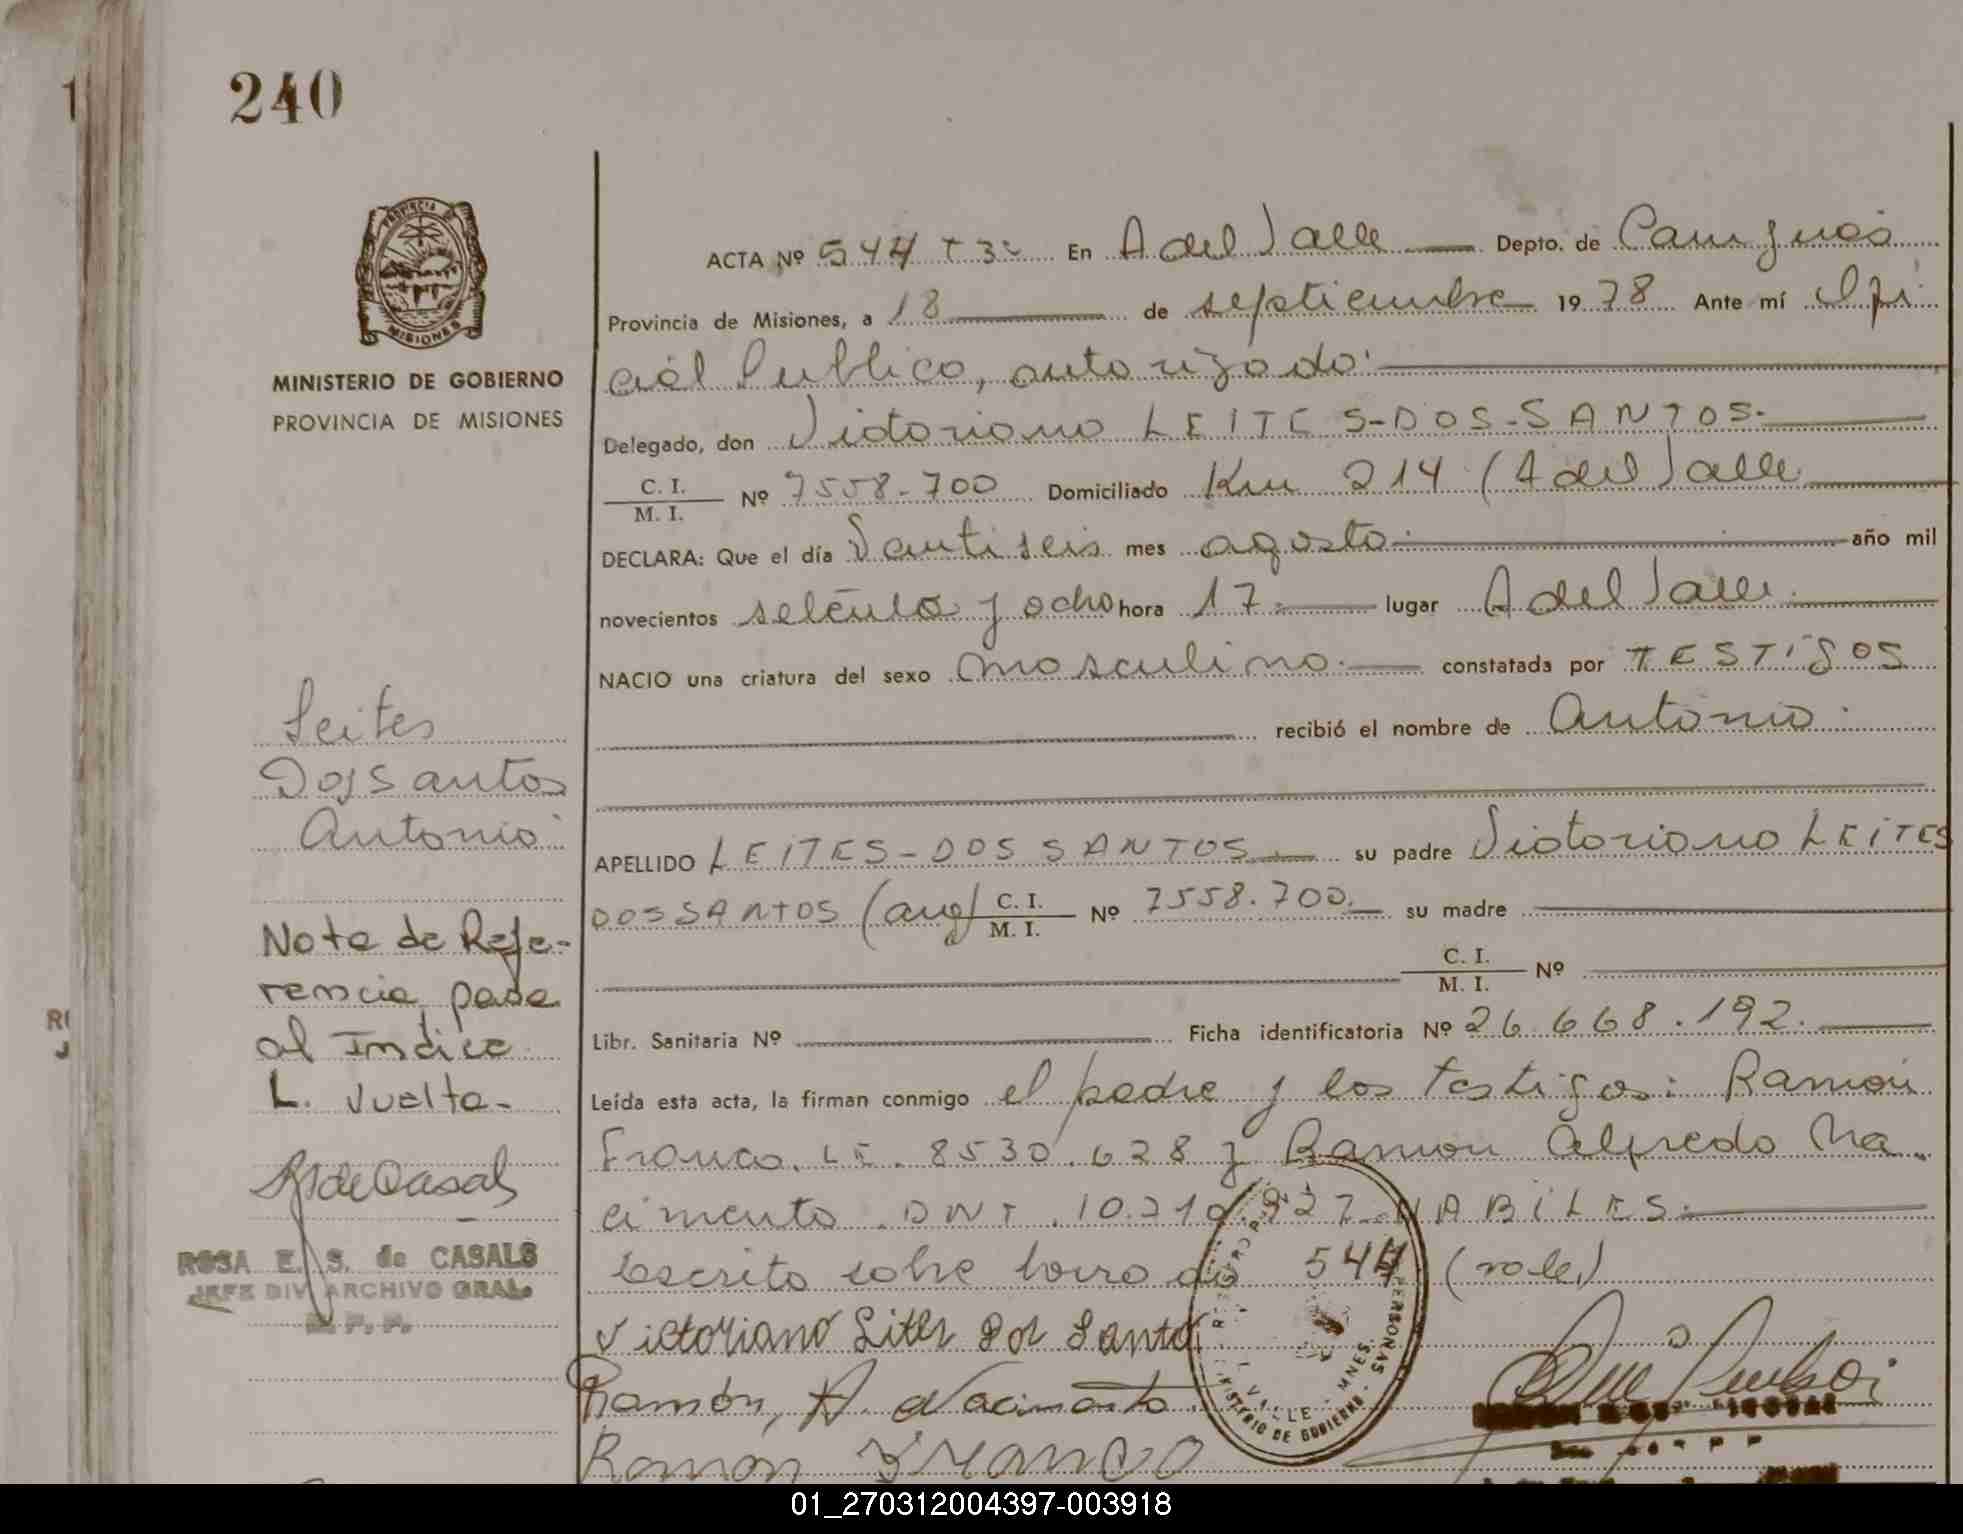 240
PROVINCIA DE
MISIONES
MINISTERIO DE GOBIERNO
PROVINCIA DE MISIONES
ACTA Nº 544 T 3º En A del Valle Depto. de Cainguás
Provincia de Misiones, a 18 de septiembre 1978 Ante mí Ofi
cial Publico, autorizado.
Delegado, don Victoriano LEITES-DOS-SANTOS.
C. I.
M. I. Nº 7558.700 Domiciliado Km 214 (A del Valle
DECLARA: Que el día Veintiseis mes agosto. año mil
novecientos setenta y ocho hora 17. lugar A del Valle.
NACIO una criatura del sexo masculino. constatada por TESTIGOS
recibió el nombre de Antonio.
APELLIDO LEITES-DOS SANTOS su padre Victoriano LEITES
DOS SANTOS (arg) C. I.
M. I. Nº 7558.700. su madre
C. I.
M. I. Nº
Libr. Sanitaria Nº Ficha identificatoria Nº 26.668.192.
Leída esta acta, la firman conmigo el padre y los testigos: Ramón
Franco. LE. 8530.628 y Ramon Alfredo Na
cimento. DNI. 10.210.927. HABILES.
Escrito sobre borrado 544 (vale)
Victoriano Lites Dos Santo
Ramón, A. Nacimento
Ramon Franco
Leites
Dos Santos
Antonio
Nota de Refe-
rencia pasa
al Indice
L. Vuelta-
RS de Casals
ROSA E. S. de CASALS
JEFE DIV ARCHIVO GRAL.
R. P. P.
VALLE - MNES.
MINISTERIO DE GOBIERNO
PERSONAS
01_270312004397-003918